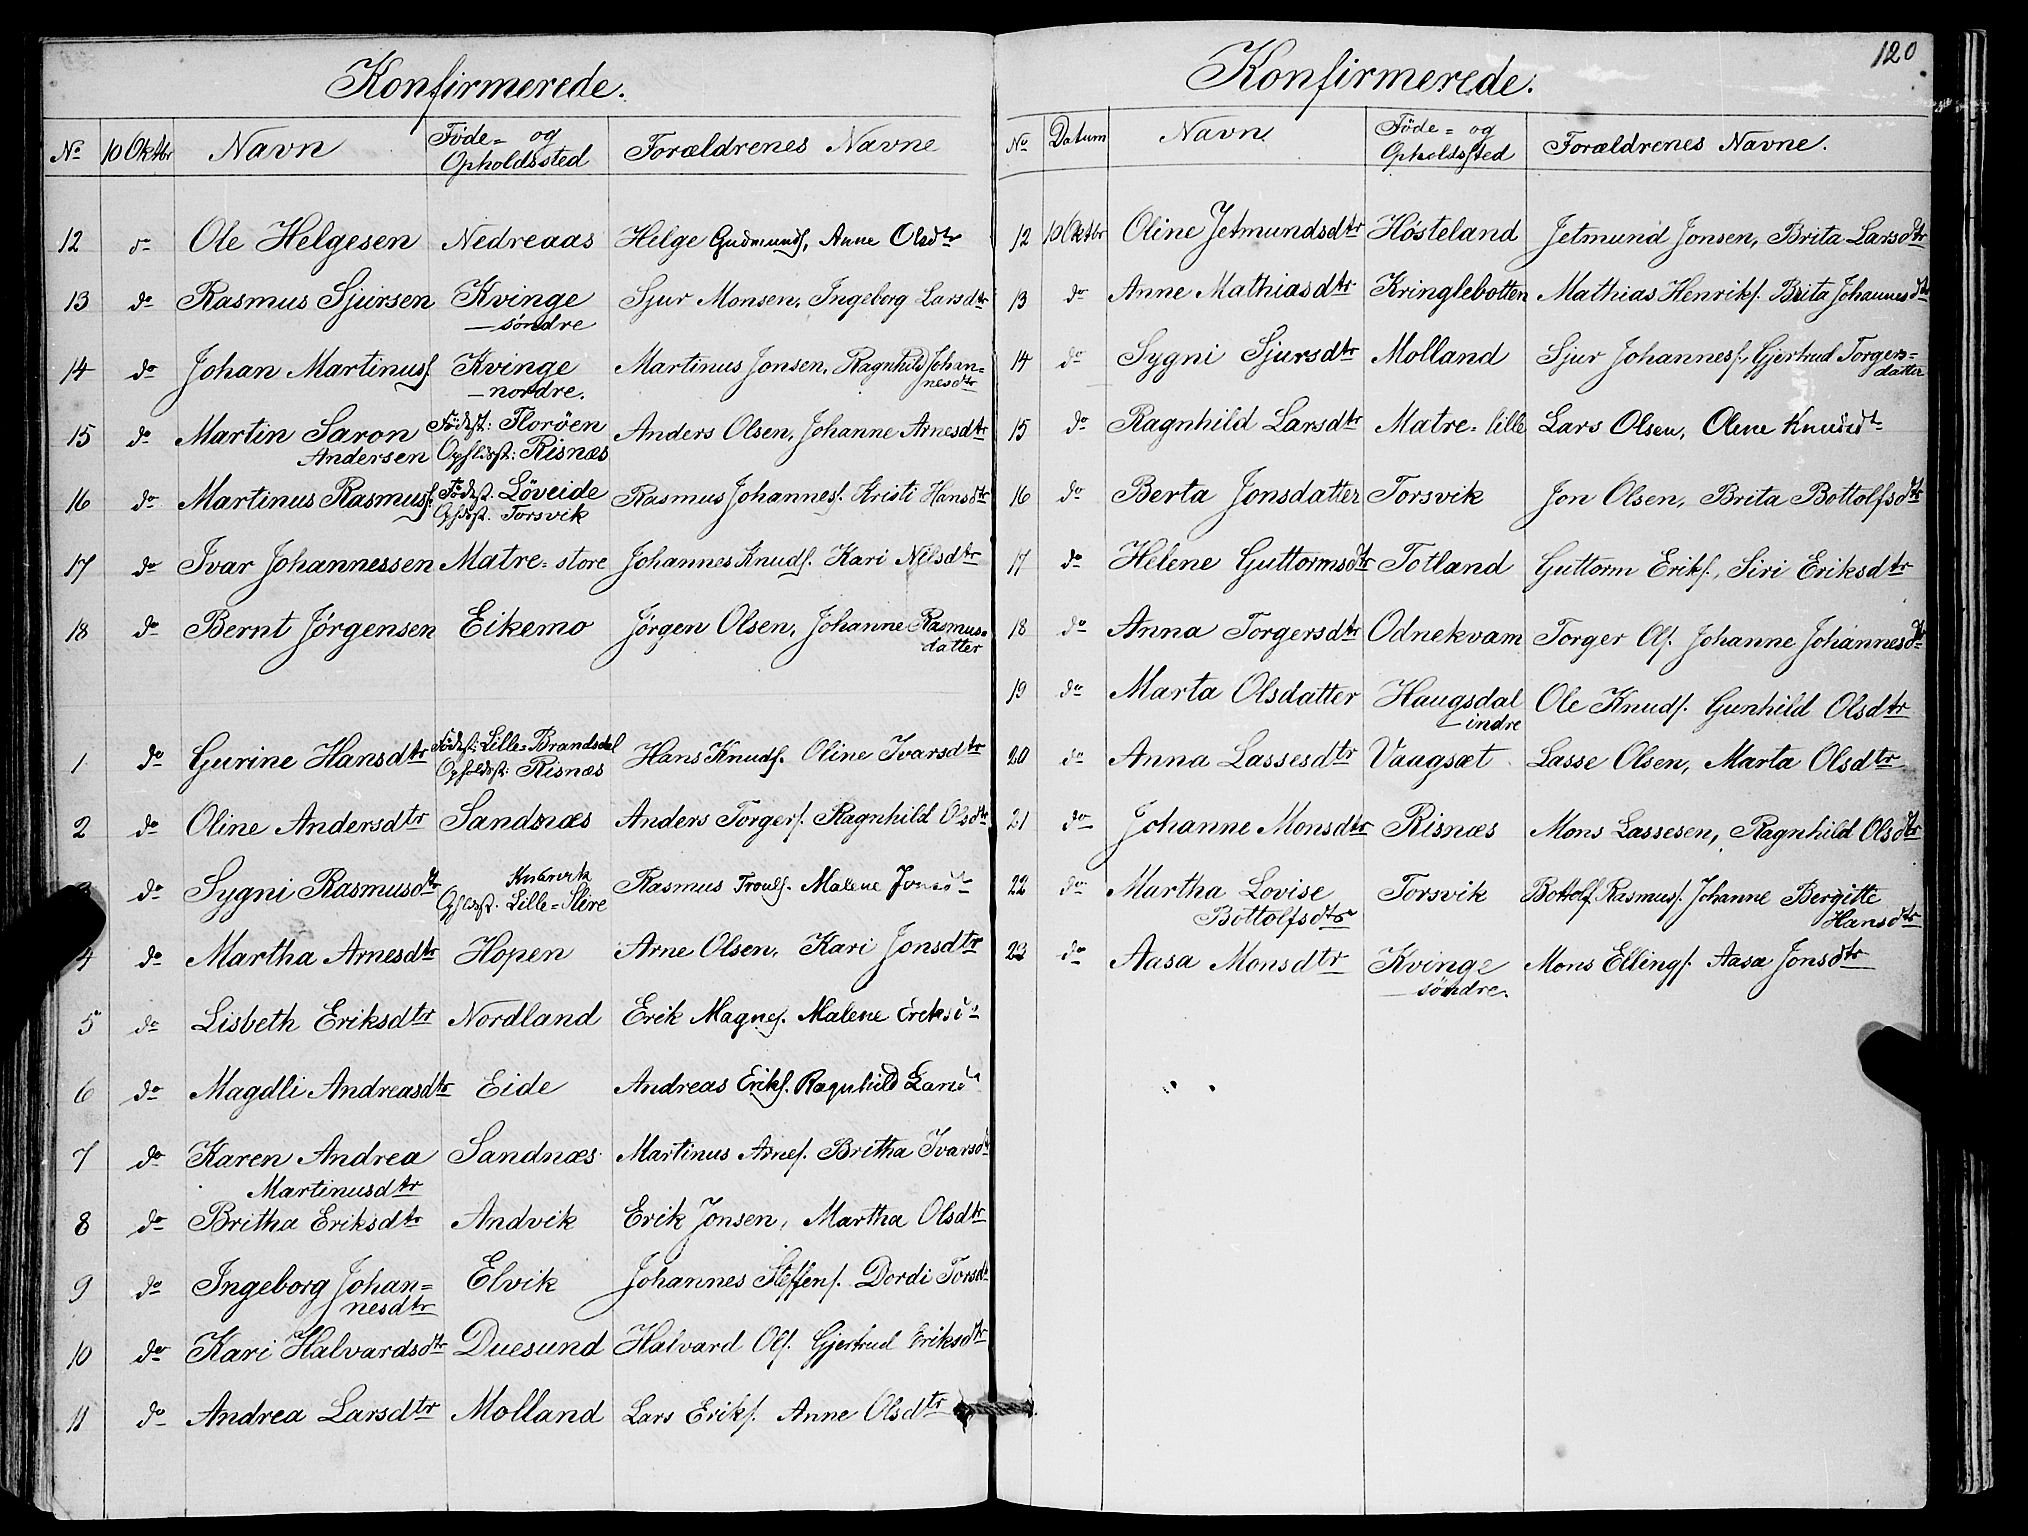 Konfirmerede.
No 10 Oktbr Navn Föde= og Opholdssted Forældrenes Navne
12 do Ole Helgesen Nedreaas Helge Gudmunds. Anne Olsdtr
13 do Rasmus Sjursen Kvinge Sjur Monsen, Ingeborg Larsdtr
— söndre
14 do Johan Martinuss. Kvinge Martinus Jonsen, Ragnhild Johan=
— nordre. nesdtr
15 do Martin Saron Födest: Floröen Anders Olsen, Johanne Arnesdtr
Andersen Opholdsst: Risnæs
16 do Martinus Rasmuss. Födest. Löveide Rasmus Johanness. Kristi Hansdtr
Opholdsst. Torsvik
17 do Ivar Johannessen Matre=store Johannes Knuds. Kari Nilsdtr
18 do Bernt Jörgensen Eikemo Jörgen Olsen, Johanne Rasmus=
datter
1 do Gurine Hansdtr Födest: Lille=Brandsdal Hans Knuds. Oline Ivarsdtr
Opholdsst: Risnæs
2 do Oline Andersdtr Sandnæs Anders Torgers. Ragnhild Olsdtr
do Sygni Rasmusdtr Knarvik Rasmus Trouls. Malene Jonsdtr
Opholdsst. Lille=Slire
4 do Martha Arnesdtr Hopen Arne Olsen, Kari Jonsdtr
5 do Lisbeth Eriksdtr Nordland Erik Magnes. Malene Eriksdtr
6 do Magdli Andreasdtr Eide Andreas Eriks. Ragnhild
7 do Karen Andrea Sandnæs Martinus Arnes. Britha Ivarsdtr
Martinusdtr
8 do Britha Eriksdtr Andvik Erik Jonsen, Martha Olsdtr
9 do Ingeborg Johan= Elvik Johannes Steffens. Dordi Torsdtr
nesdtr
10 do Kari Halvardsdtr Duesund Halvard Ols. Gjertrud Eriksdtr
11 do Andrea Larsdtr Molland Lars Eriks. Anne Olsdtr
120
Konfirmerede.
No Datum Navn Föde= og Opholdssted Forældrenes Navne.
12 10 Oktbr Oline Jetmundsdtr Hösteland Jetmund Jonsen, Brita Larsdtr
13 do Anne Mathiasdtr Kringlebotten Mathias Henriks. Brita Johannesdtr
14 do Sygni Sjursdtr Molland Sjur Johanness, Gjertrud Torgers=
datter
15 do Ragnhild Larsdtr Matre=lille Lars Olsen, Oline Knudsdtr
16 do Berta Jonsdatter Torsvik Jon Olsen, Brita Bottolfsdtr
17 do Helene Guttormsdtr Totland Guttorm Eriks, Siri Eriksdtr
18 do Anna Torgersdtr Odnekvam Torger Ols. Johanne Johannesdtr
19 do Marta Olsdatter Haugsdal Ole Knuds. Gunhild Olsdtr
— indre
20 do Anna Lassesdtr Vaagsæt Lasse Olsen, Marta Olsdtr
21 do Johanne Monsdtr Risnæs Mons Lassesen, Ragnhild Olsdtr
22 do Martha Lovise Torsvik Bottolf Rasmuss. Johanne Bergitte
Bottolfsdtr Hansdtr
23 do Aasa Monsdtr Kvinge Mons Ellings. Aasa Jonsdtr
— söndre.